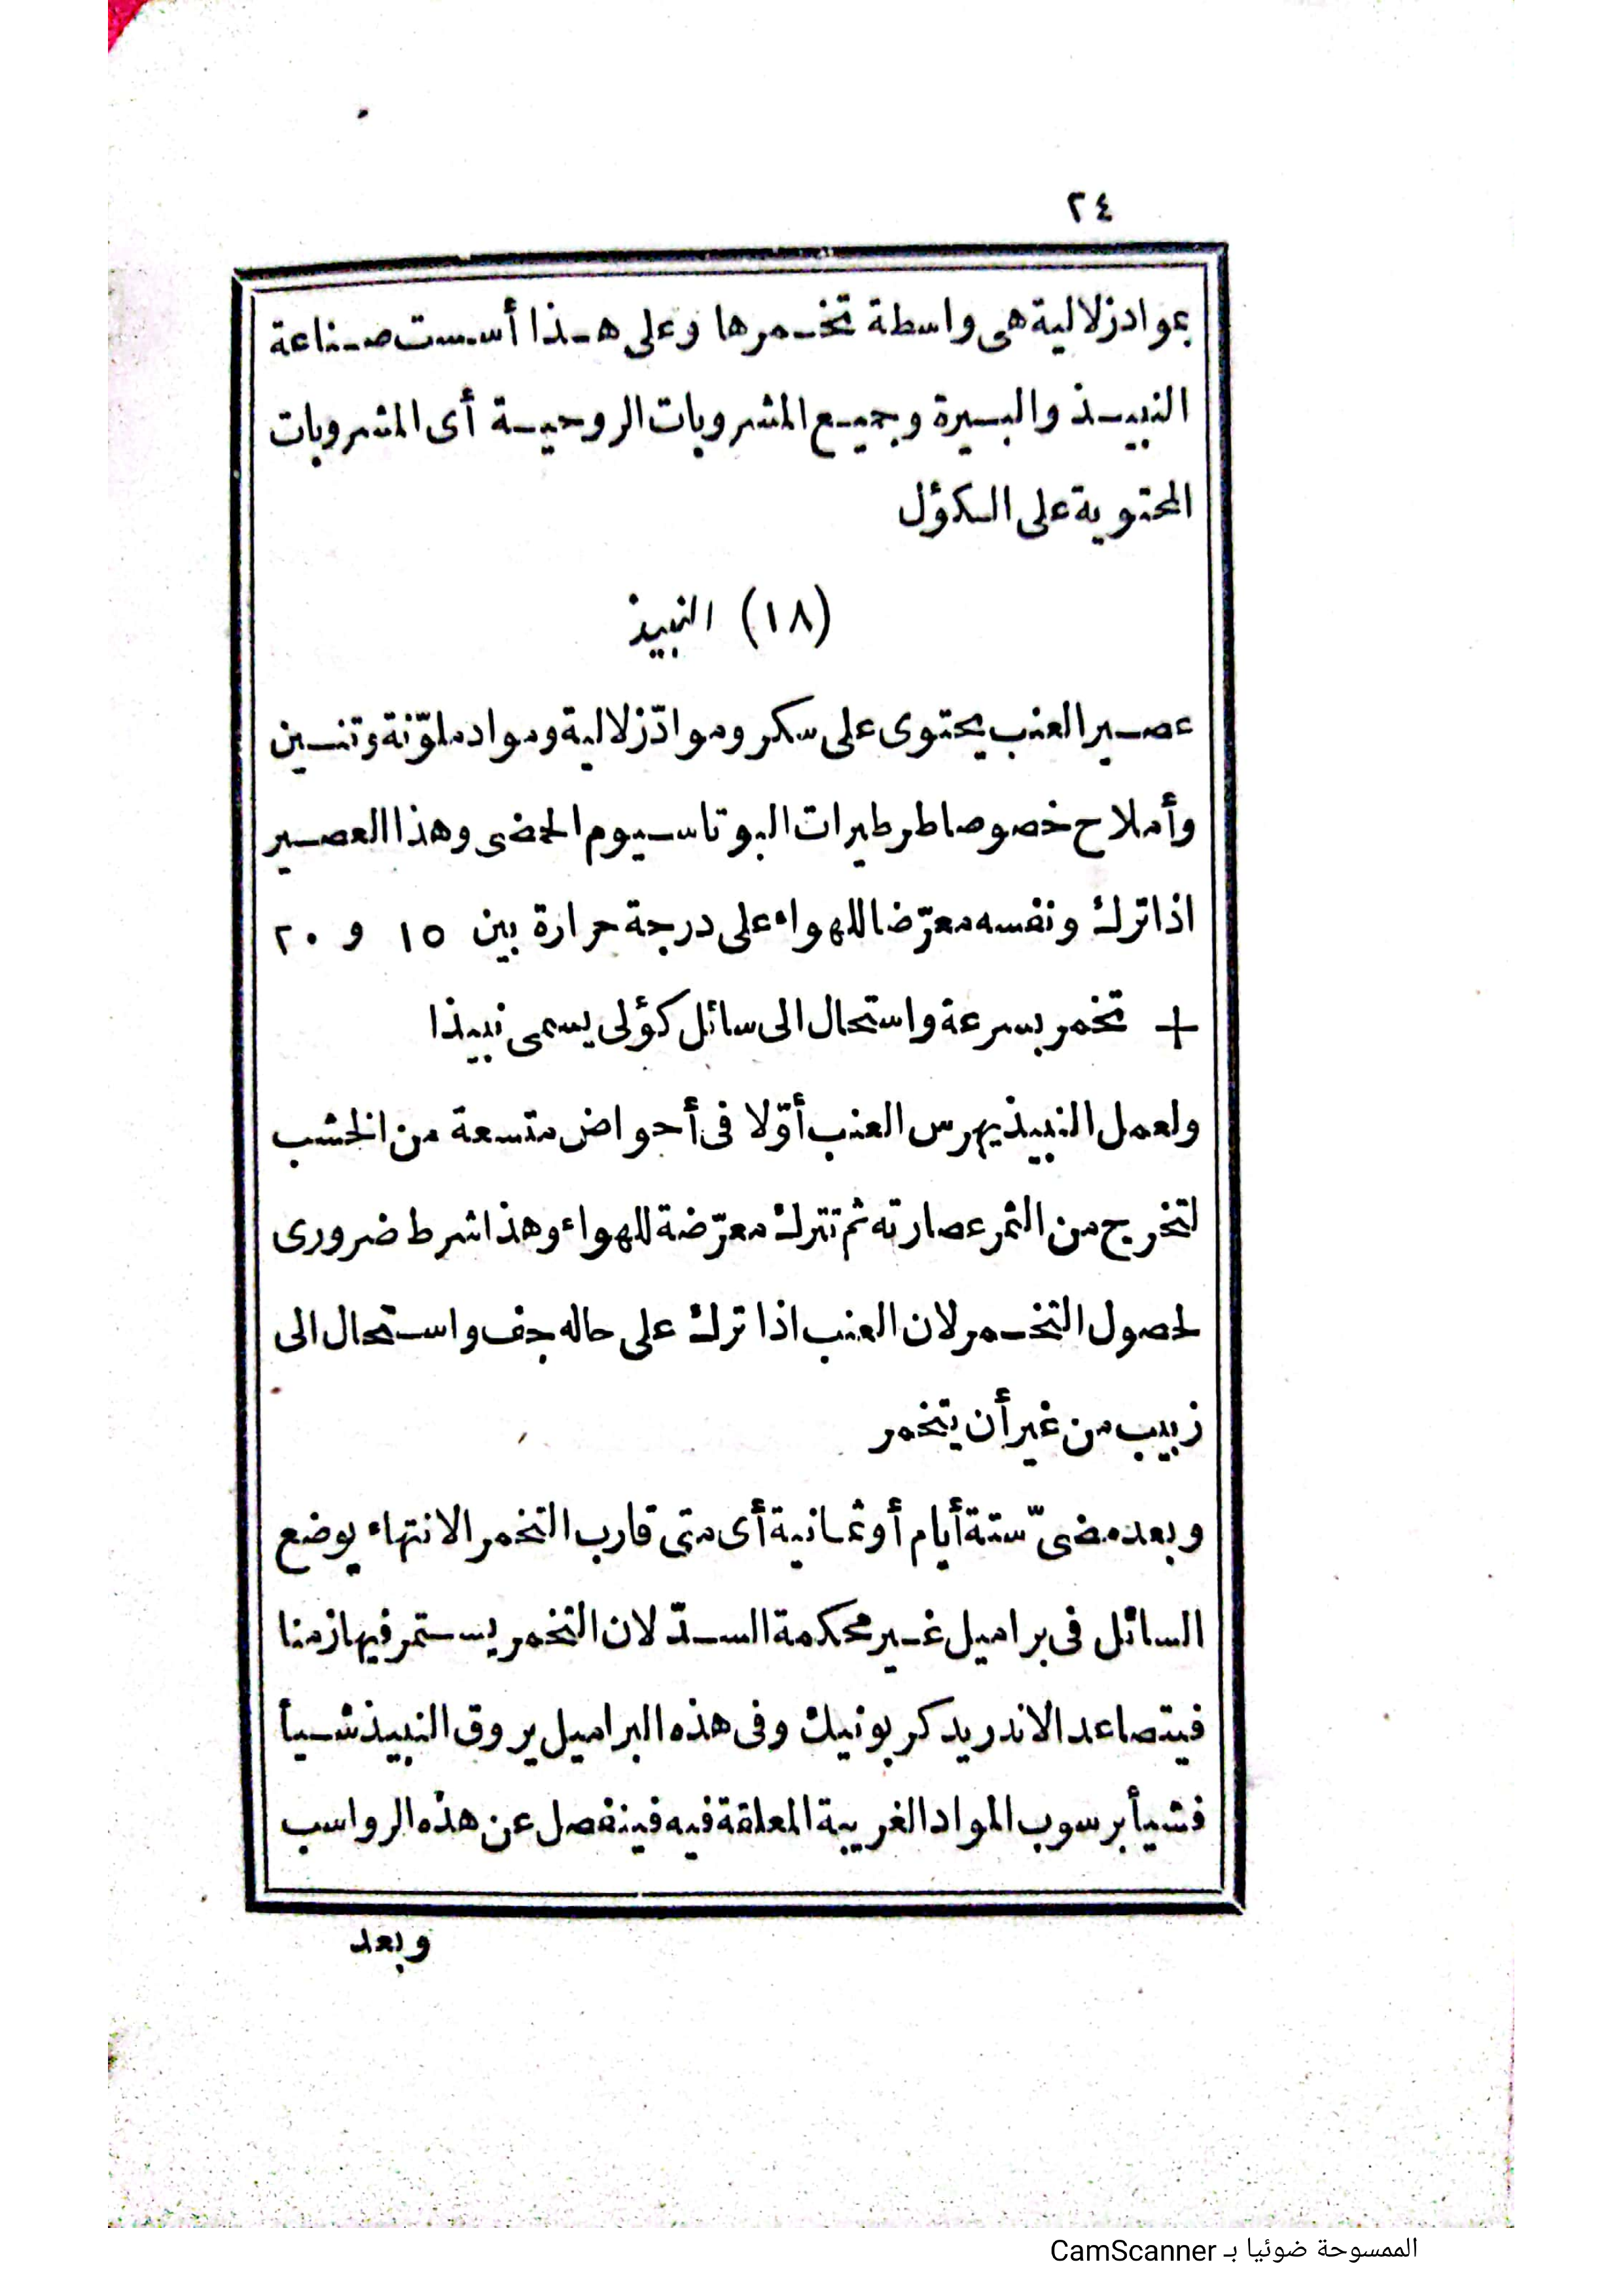 ٢٤
بمواد زلالية هى واسطة تخمرها وعلى هذا أسست صناعة
النبيذ والبيرة وجميع المشروبات الروحية أى المشروبات
المحتوية على الكؤل
(١٨) النبيذ
عصير العنب يحتوى على سكر وموادّ زلالية ومواد ملوّنة وتنين
وأملاح خصوصا طرطيرات البوتاسيوم الحمضى وهذا العصير
اذا ترك ونفسه معرّضا للهواء على درجة حرارة بين ١٥ و ٢٠
+ تخمر بسرعة واستحال الى سائل كؤلى يسمى نبيذا
ولعمل النبيذ يهرس العنب أوّلا فى أحواض متسعة من الخشب
لتخرج من الثمر عصارته ثم تترك معرّضة للهواء وهذا شرط ضرورى
لحصول التخمر لان العنب اذا ترك على حاله جف واستحال الى
زبيب من غير أن يتخمر
وبعد مضىّ ستة أيام أو ثمانية أى متى قارب التخمر الانتهاء يوضع
السائل فى براميل غير محكمة السدّ لان التخمر يستمر فيها زمنا
فيتصاعد الاندريد كربونيك وفى هذه البراميل يروق النبيذ شيأ
فشيأ برسوب المواد الغريبة المعلقة فيه فينفصل عن هذه الرواسب
وبعد
الممسوحة ضوئيا بـ CamScanner